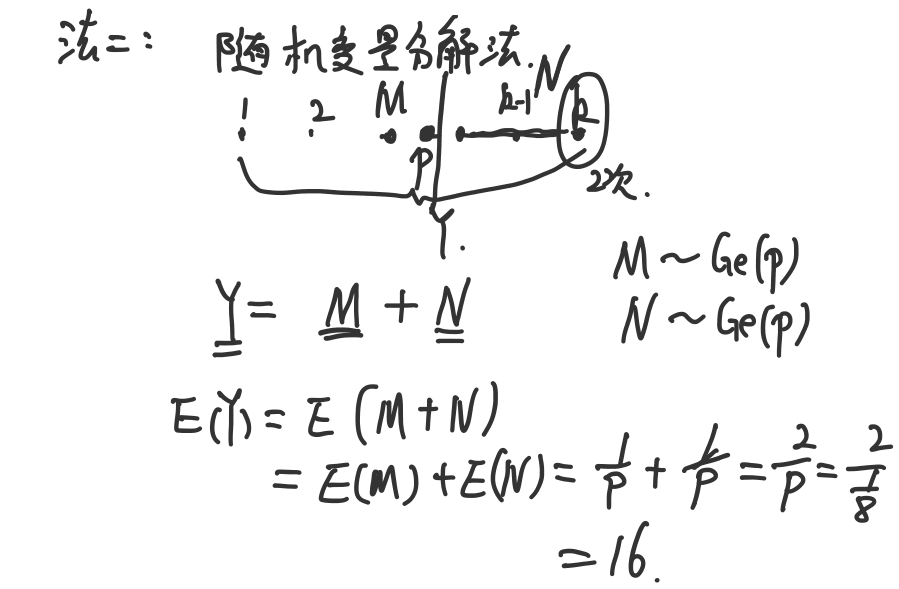 法二：随机变量分解法.
1 2 M n-1 N n
P
2次.
Y.
M ~ Ge(p)
Y = M + N
N ~ Ge(p)
E(Y) = E(M+N)
= E(M) + E(N) = 1/P + 1/P = 2/P = 2/(1/8)
= 16.